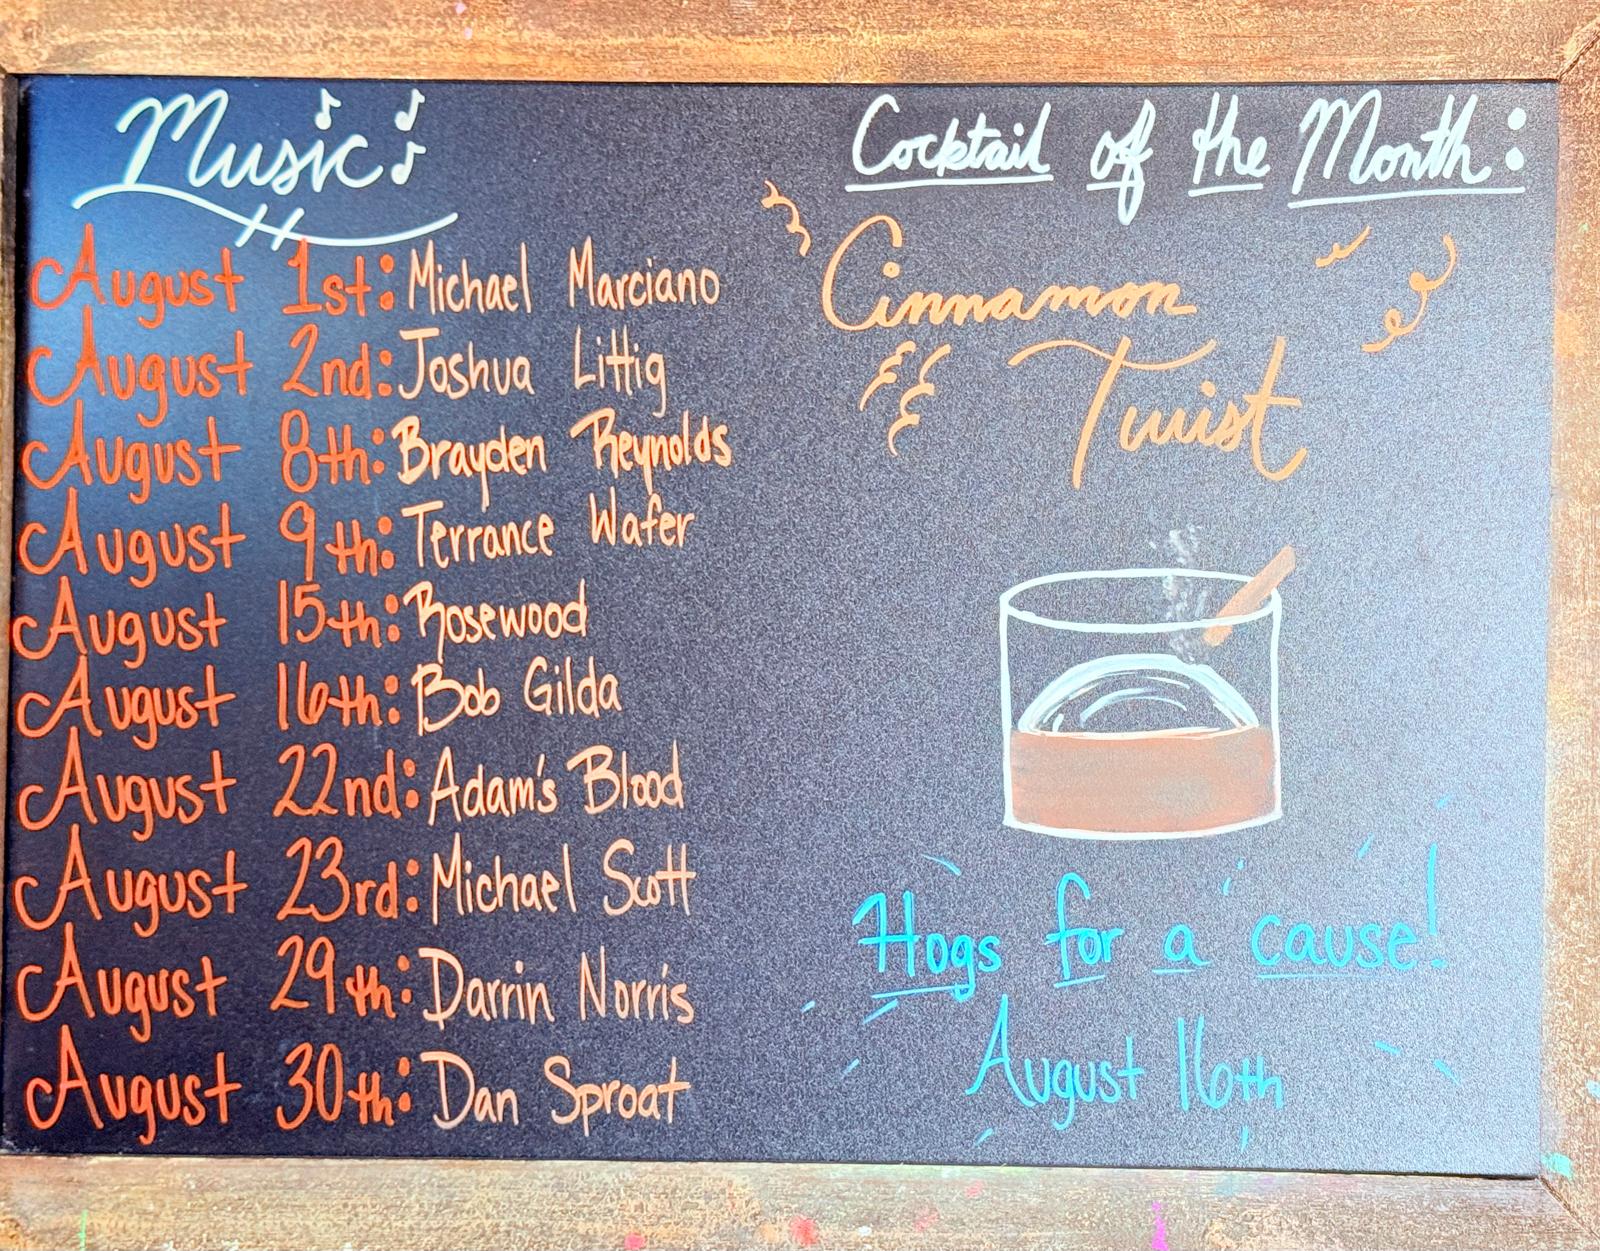 Music
August 1st: Michael Marciano
August 2nd: Joshua Littig
August 8th: Brayden Reynolds
August 9th: Terrance Wafer
August 15th: Rosewood
August 16th: Bob Gilda
August 22nd: Adam's Blood
August 23rd: Michael Scott
August 29th: Darrin Norris
August 30th: Dan Sproat
Cocktail of the Month:
Cinnamon
Twist
Hogs for a cause!
August 16th